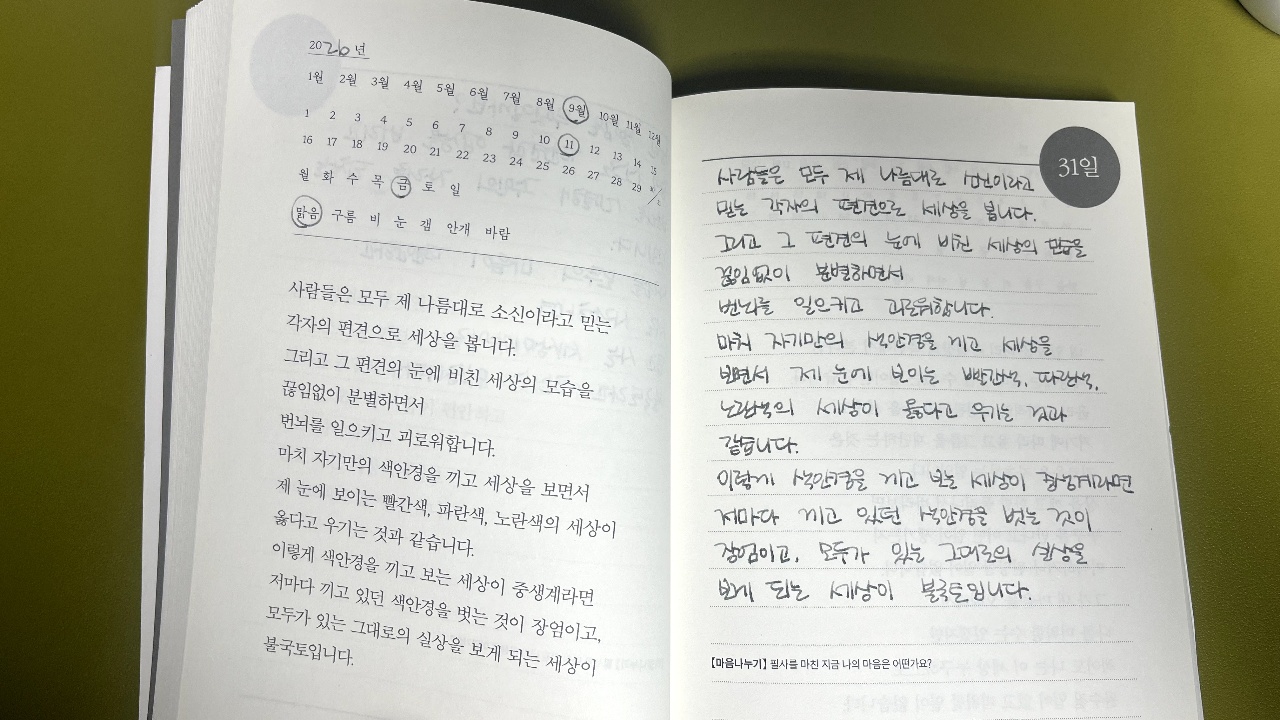 2026년
1월 2월 3월 4월 5월 6월 7월 8월 9월 10월 11월 12월
1 2 3 4 5 6 7 8 9 10 11 12 13 14 15
16 17 18 19 20 21 22 23 24 25 26 27 28 29 30/31
월 화 수 목 금 토 일
맑음 구름 비 눈 갬 안개 바람
사람들은 모두 제 나름대로 소신이라고 믿는
각자의 편견으로 세상을 봅니다.
그리고 그 편견의 눈에 비친 세상의 모습을
끊임없이 분별하면서
번뇌를 일으키고 괴로워합니다.
마치 자기만의 색안경을 끼고 세상을 보면서
제 눈에 보이는 빨간색, 파란색, 노란색의 세상이
옳다고 우기는 것과 같습니다.
이렇게 색안경을 끼고 보는 세상이 중생계라면
저마다 끼고 있던 색안경을 벗는 것이 장엄이고,
모두가 있는 그대로의 실상을 보게 되는 세상이
불국토입니다.
31일
사람들은 모두 제 나름대로 소신이라고
믿는 각자의 편견으로 세상을 봅니다.
그리고 그 편견의 눈에 비친 세상의 모습을
끊임없이 분별하면서
번뇌를 일으키고 괴로워합니다.
마치 자기만의 색안경을 끼고 세상을
보면서 제 눈에 보이는 빨간색, 파란색,
노란색의 세상이 옳다고 우기는 것과
같습니다.
이렇게 색안경을 끼고 보는 세상이 중생계라면
저마다 끼고 있던 색안경을 벗는 것이
장엄이고, 모두가 있는 그대로의 실상을
보게 되는 세상이 불국토입니다.
[마음나누기] 필사를 마친 지금 나의 마음은 어떤가요?